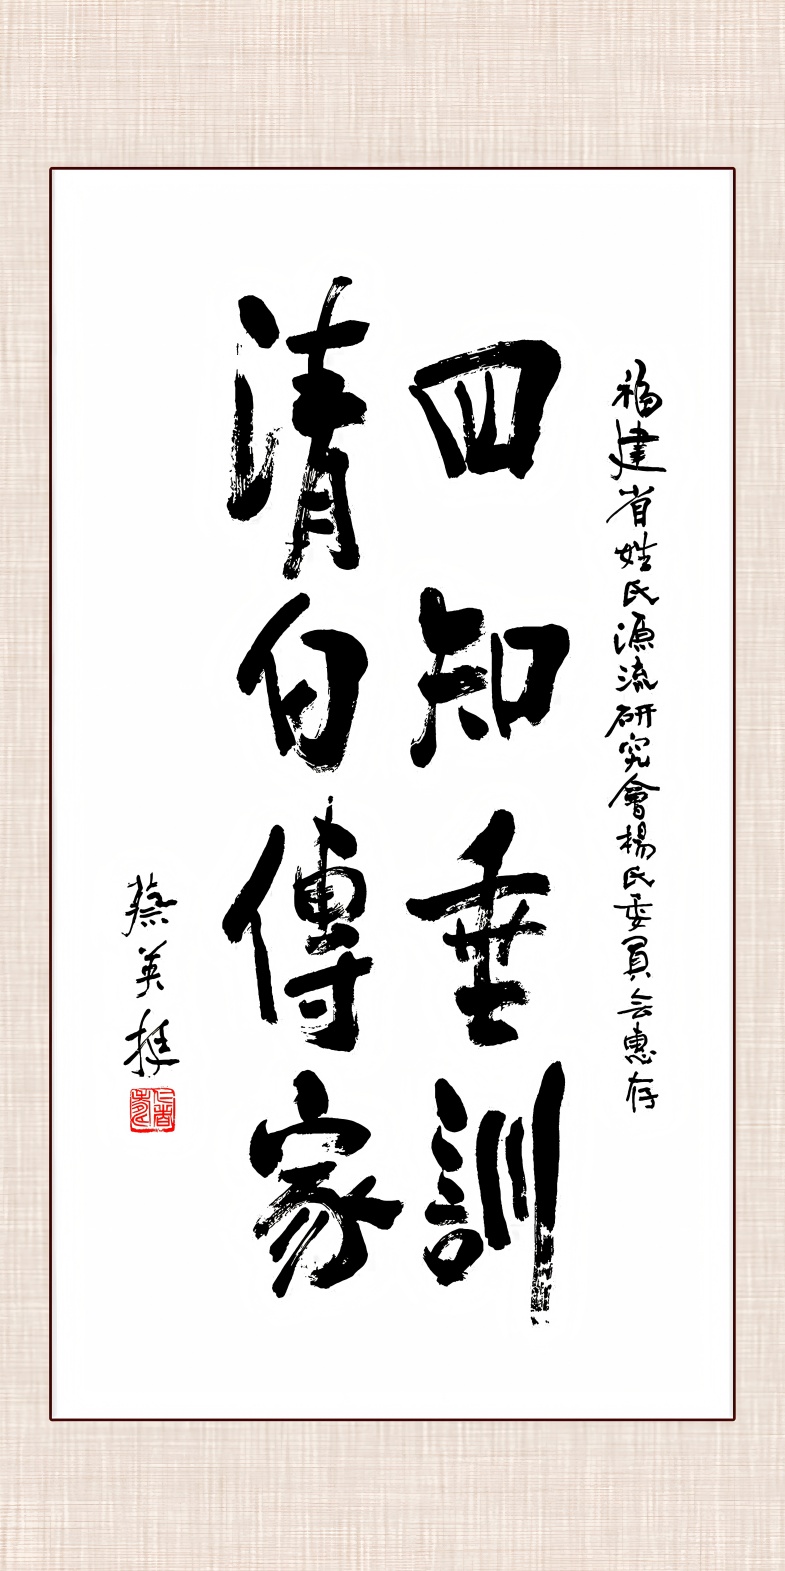 福建省姓氏源流研究會楊氏委員会惠存
四知垂訓
清白傳家
蔡英挺